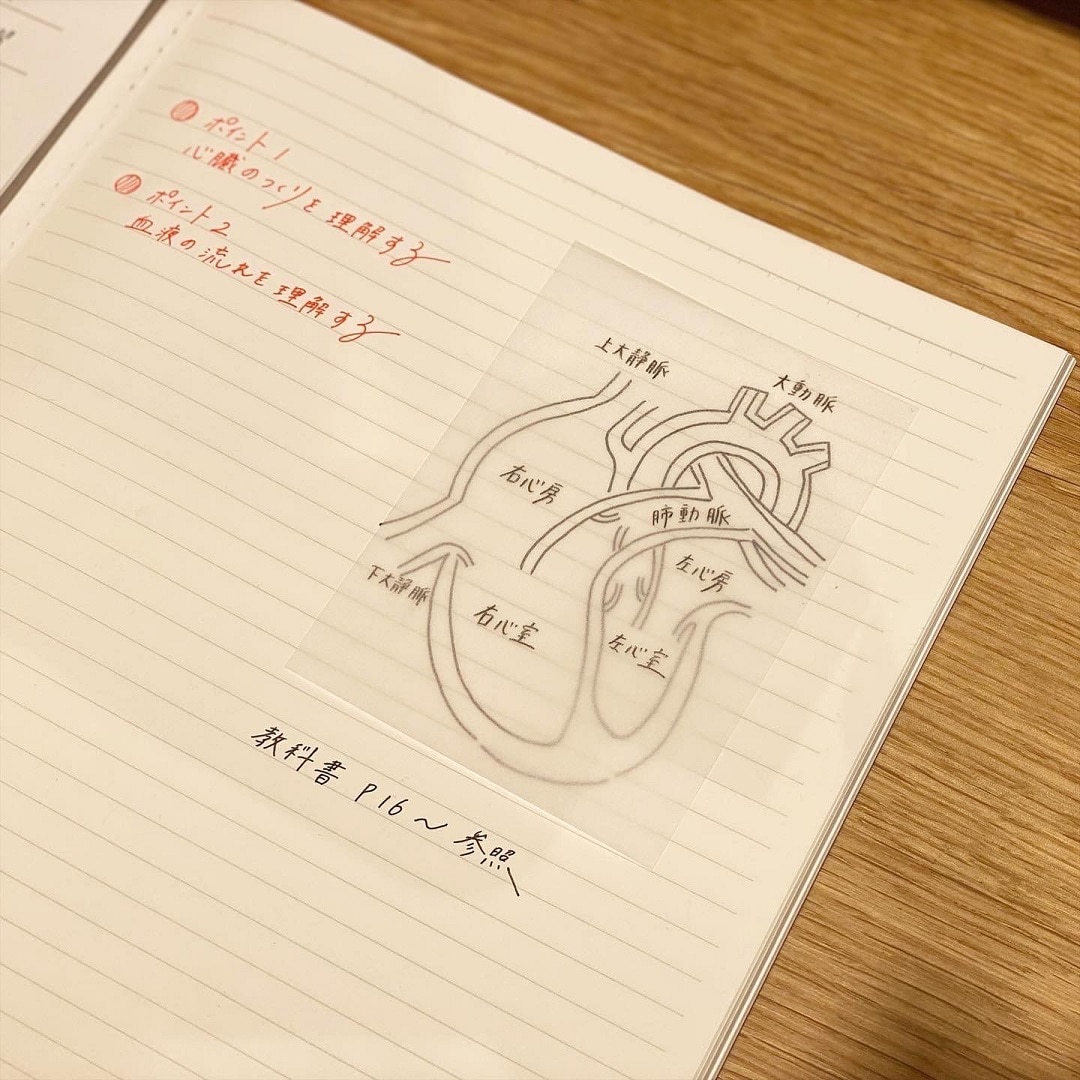 ポイント1
心臓のつくりを理解する
ポイント2
血液の流れを理解する
上大静脈
大動脈
右心房
肺動脈
左心房
下大静脈
右心室
左心室
教科書 P16〜参照